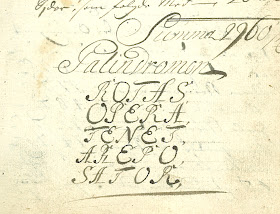 som
Summa 2960
Palindromon
ROTAS
OPERA,
TENET,
AREPO,
SATOR,